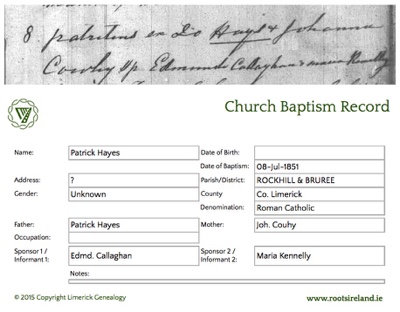 8 patritius ex Do Hays & Johanna
Cowhy Sp Edmund Callaghan & maria Kennelly
Church Baptism Record
Name: Patrick Hayes Date of Birth:
Date of Baptism: 08-Jul-1851
Address: ? Parish/District: ROCKHILL & BRUREE
Gender: Unknown County Co. Limerick
Denomination: Roman Catholic
Father: Patrick Hayes Mother: Joh. Couhy
Occupation:
Sponsor 1 / Informant 1: Edmd. Callaghan Sponsor 2 / Informant 2: Maria Kennelly
Notes:
© 2015 Copyright Limerick Genealogy www.rootsireland.ie